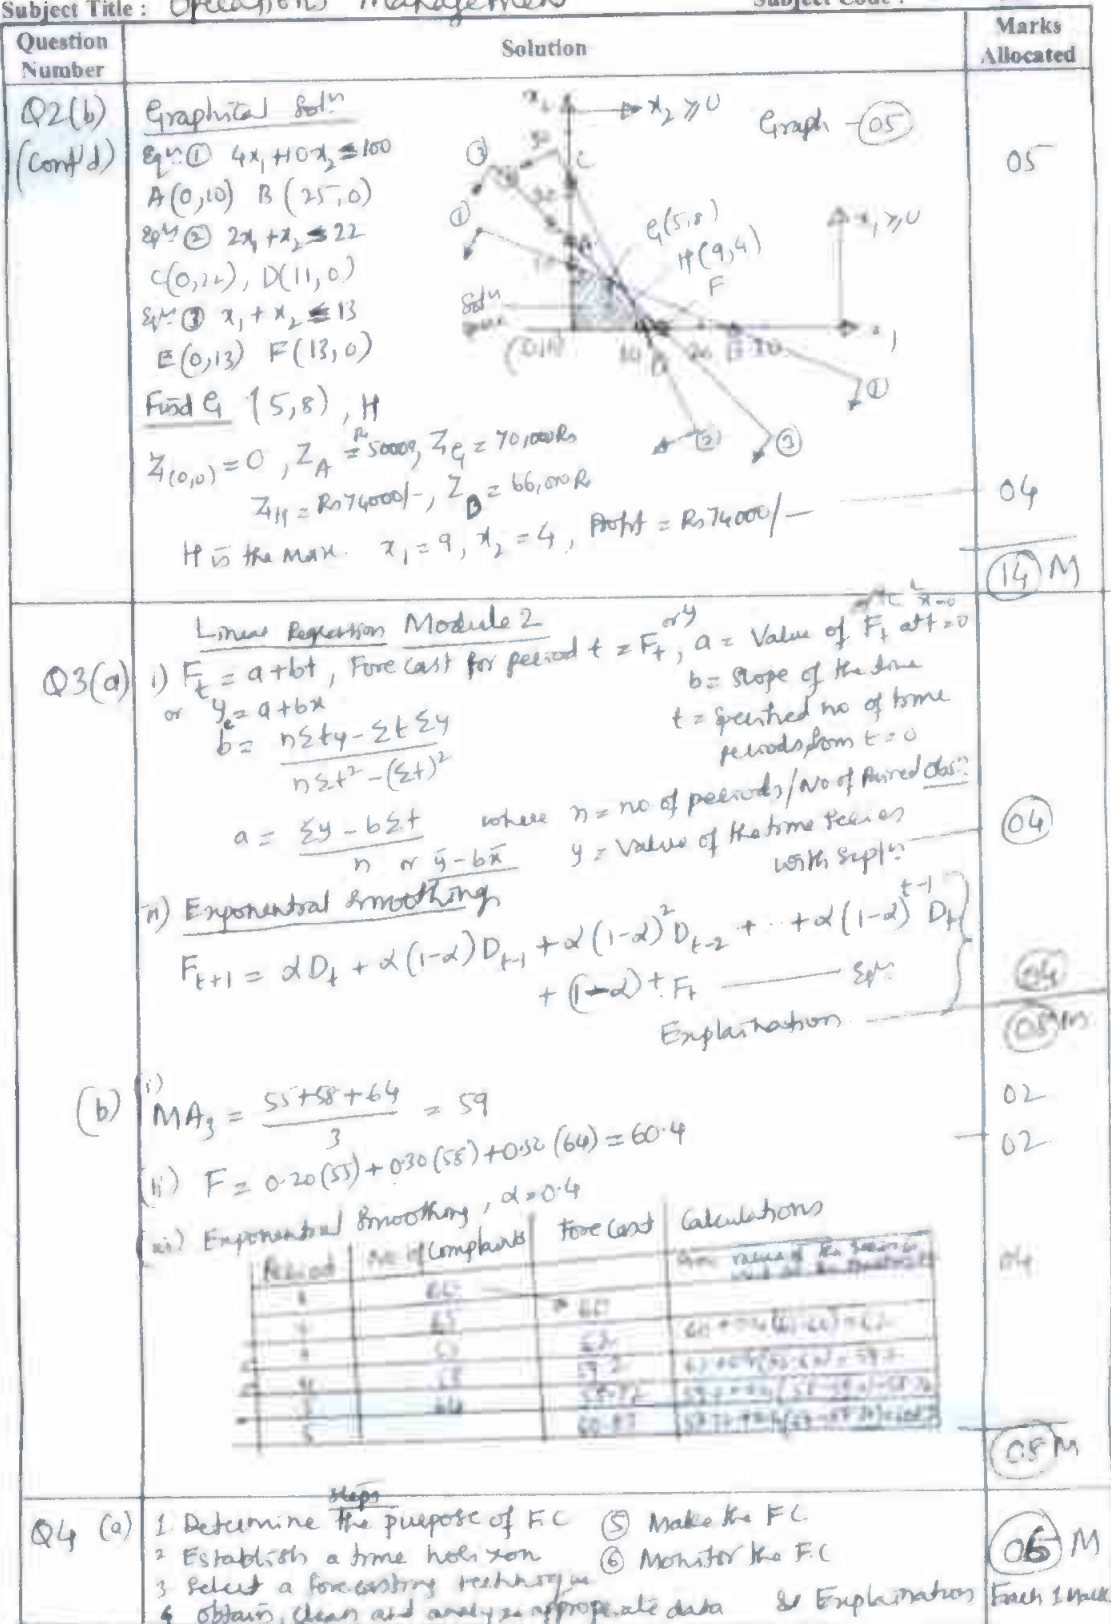 Subject Title : Operations Management Subject Code :
Question Number Solution Marks Allocated
Q2(b) Graphical Soln
(Cont'd) Eqn ① 4x1 + 10x2 ≤ 100
A(0,10) B(25,0)
Eqn ② 2x1 + x2 ≤ 22
C(0,22), D(11,0)
Eqn ③ x1 + x2 ≤ 13
E(0,13) F(13,0)
Find G (5,8), H
x2 ≥ 0 Graph - 05 05
③ C
①
G(5,8) x1 ≥ 0
H(9,4)
F
Soln
(0,0) 10 20 x1
①
② ③
Z(0,0) = 0, ZA = 50000, ZG = 70,000Rs
ZH = Rs 74000/-, ZB = 66,000R 04
H is the max. x1 = 9, x2 = 4, Profit = Rs 74000/-
14 M
Linear Regression Module 2
Q3(a) i) Ft = a+bt, Fore cast for period t = Ft, or y a = Value of Ft at t=0
or ye = a+bx b = Slope of the line
b = nΣty - ΣtΣy / nΣt² - (Σt)² t = Specified no of time
periods from t=0
a = Σy - bΣt / n or ȳ - bx̄ where n = no of periods/No of Paired Obsn
y = Value of the time Series
with Expln 04
ii) Exponential Smoothing
Ft+1 = αDt + α(1-α)Dt-1 + α(1-α)²Dt-2 + ... + α(1-α)t-1 Dt
+ (1-α) t Ft Eqn 04
Explaination 08 M
(b) (i) MA3 = 55+58+64 / 3 = 59 02
(ii) F = 0.20(55) + 0.30(58) + 0.50(64) = 60.4 02
(iii) Exponential Smoothing, α=0.4
Period No of Complaints Fore Cast Calculations 04
1 60
65 60
62
58 59.2
5 64 58.72
6 60.83
08 M
Steps
Q4 (a) 1 Determine the purpose of F.C ⑤ Make the F.C. 06 M
2 Establish a time horizon ⑥ Monitor the F.C
3 Select a forecasting technique
4 obtain, clean and analyze appropriate data & Explaination Each 1 Mark